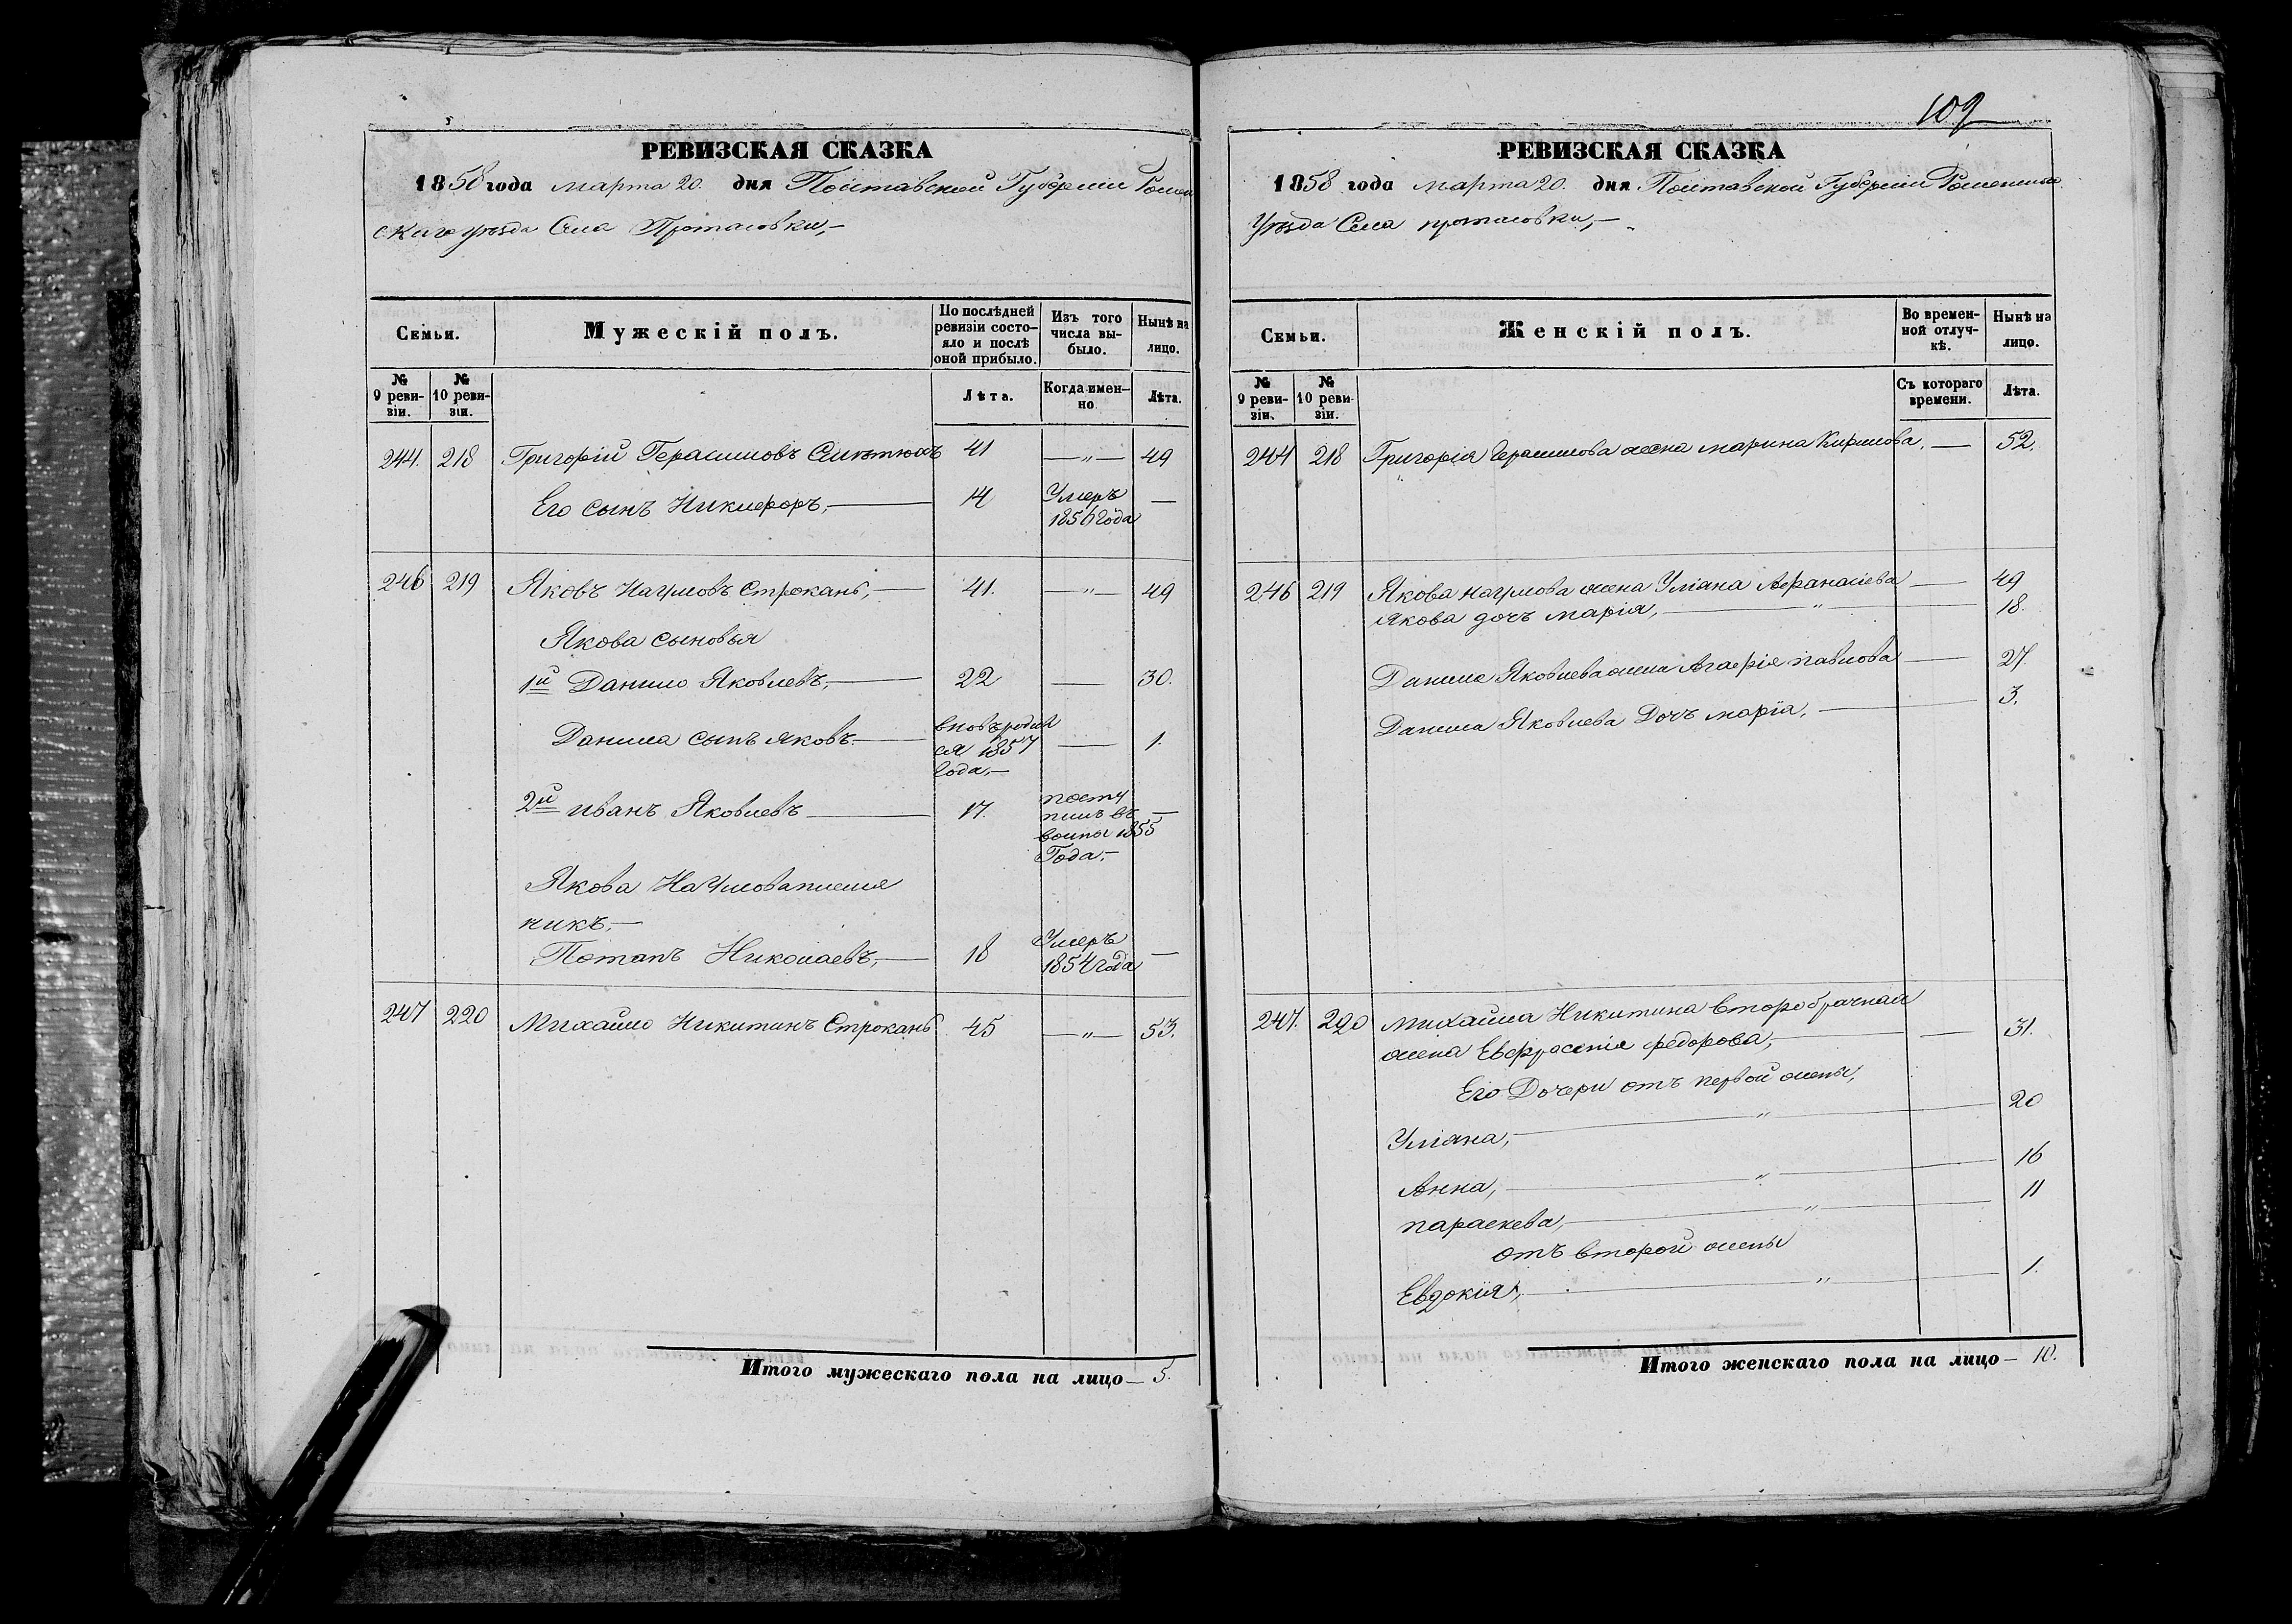 РЕВИЗСКАЯ СКАЗКА
1858 года марта 20. дня Полтавской Губернии Ромен
скаго уѣзда Села Протасовки,—
Семьи.
Мужескій полъ.
По послѣдней ревизіи состо-
яло и послѣ
оной прибыло.
Изъ того
числа вы-
было.
Нынѣ на
лицо.
№
9 реви-
зіи.
№
10 реви-
зіи.
Лѣта.
Когда имен-
но
Лѣта.
244. 218 Григорій Герасимовъ 41 —"— 49
Его сынъ Никифоръ,— 14 Умеръ —
1856 года
246 219 Яковъ Наумовъ Строкань,— 41. —"— 49
Якова сыновья
1й Данило Яковлевъ,— 22 — 30.
Данила сынъ яковъ.— вновь родил
ся 1857 — 1.
года,—
2й иванъ Яковлевъ — 17. посту
пилъ въ —
воины 1855
Года,—
Якова Наумова племя
никъ,—
Потапъ Николаевъ,— 18 Умеръ —
1854 года
247 220 Михайло Никитинъ Строкань 45 —"— 53.
Итого мужескаго пола на лицо— 5.
109
РЕВИЗСКАЯ СКАЗКА
1858 года марта 20. дня Полтавской Губерніи
Уѣзда Села протасовки,—
Семьи.
Женскій полъ.
Во времен-
ной отлуч-
кѣ.
Нынѣ на
лицо.
№
9 реви-
зіи.
№
10 реви-
зіи.
Съ котораго
времени.
Лѣта.
244 218 Григорія Герасимова жена марина Кирилова, — 52.
246 219 Якова наумова жена Уліана Афанасіева — 49
якова дочъ марія, — " — 18.
Данила Яковлева жена Агафія павлова — 27.
Данила Яковлева Дочъ марія, — 3.
247. 220 михайла Никитина второбрачная
жена Евфросенія федорова,— — 31.
Его Дочери отъ первой жены,
Уліана,— " — 20
Анна, — " — 16
параскева,— " — 11
отъ второй жены
Евдокія,— " — 1.
Итого женскаго пола на лицо— 10.